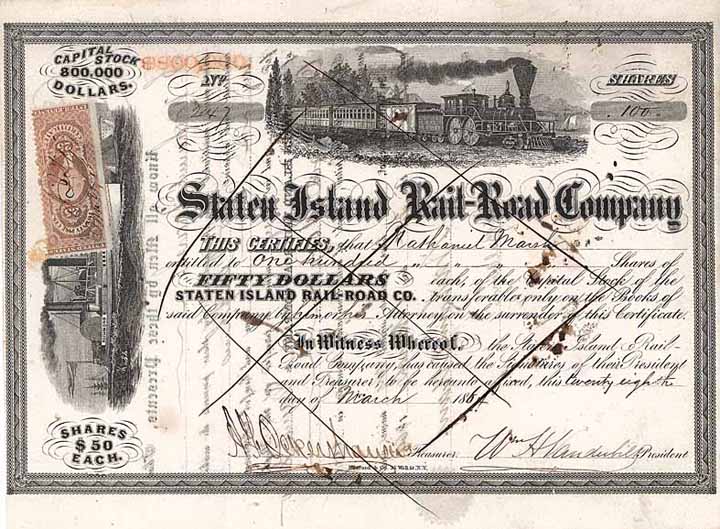 CAPITAL
STOCK
800,000
DOLLARS.
No.
247
SHARES
100
Staten Island Rail-Road Company
THIS CERTIFIES, that Nathaniel Marsh
entitled to One hundred Shares of
FIFTY DOLLARS each, of the Capital Stock of the
STATEN ISLAND RAIL-ROAD CO. transferable only on the Books of
said Company by him or his Attorney on the surrender of this Certificate.
In Witness Whereof, the Staten Island Rail-
Road Company, has caused the Signatures of their President
and Treasurer, to be hereunto affixed, this twenty eighth
day of March 186
Treasurer. Wm H Vanderbilt President
SHARES
$50
EACH.